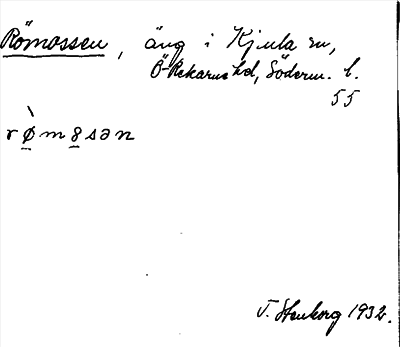 Römossen, äng i Kjula sn,
Ö-Rekarne hd, Söderm. l.
55
rø̀mȣsən
T. Stenborg 1932.